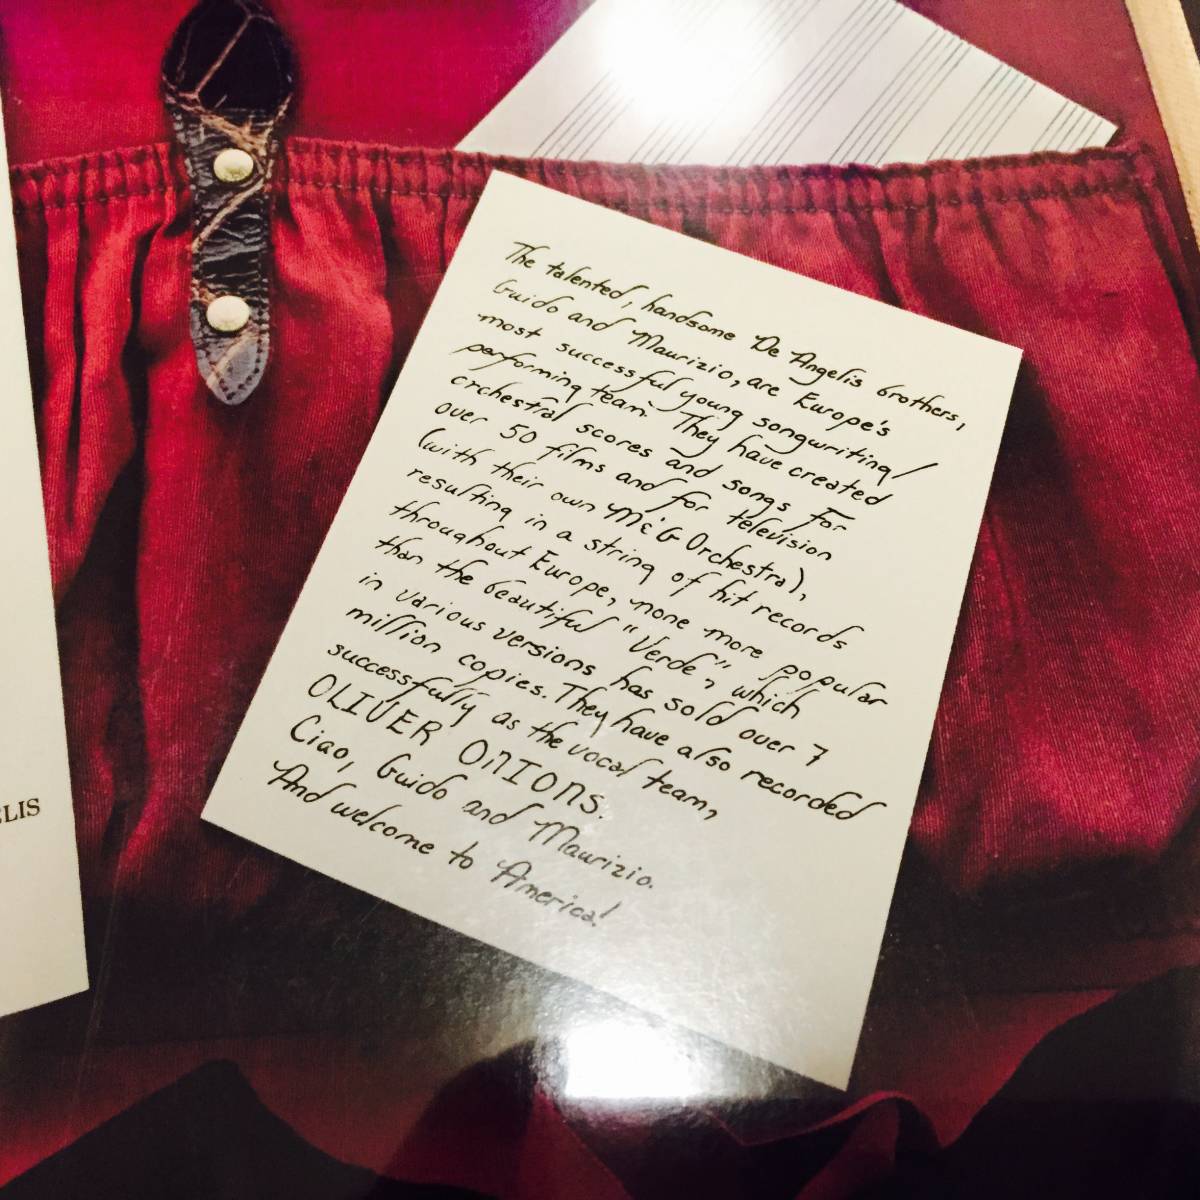 The talented, handsome De Angelis brothers,
Guido and Maurizio, are Europe's
most successful young songwriting/
performing team. They have created
orchestral scores and songs for
over 50 films and for television
(with their own M&G Orchestra),
resulting in a string of hit records
throughout Europe, none more popular
than the beautiful "Verde", which
in various versions has sold over 7
million copies. They have also recorded
successfully as the vocal team,
OLIVER ONIONS.
Ciao, Guido and Maurizio.
And welcome to America!
LIS